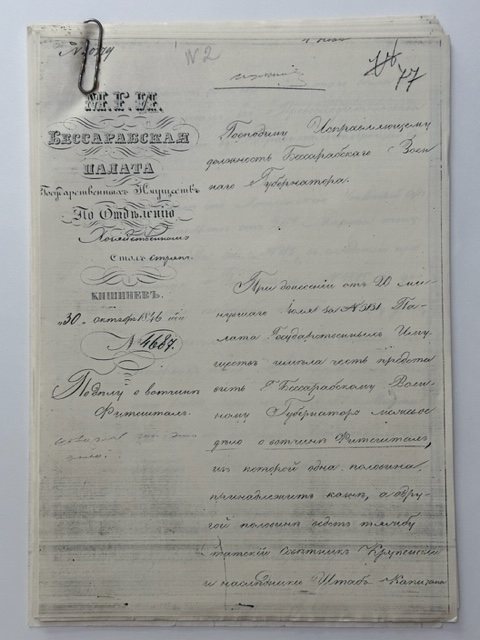 N 2
77
М.Г.И.
БЕССАРАБСКАЯ
ПАЛАТА
Государственныхъ Имуществъ
По Отдѣленію
Хозяйственному
Столъ
КИШИНЕВЪ.
"30" октября 1846 года
N 4687.
По дѣлу о вотчинѣ
Фитештахъ.
Господину Исправляющему
должность Бессарабскаго Воен
наго Губернатора.
При донесеніи от 20 ми
нувшаго Іюля за N Па
лата Государственныхъ Иму
ществъ имѣла честь предста
вить Г. Бессарабскому Воен
ному Губернатору
дѣло о вотчинѣ Фитештахъ,
изъ которой одна половина
принадлежитъ казнѣ, а дру
гой половины
татскій Совѣтникъ Крупенскій
и наслѣдники Штабъ Капитана